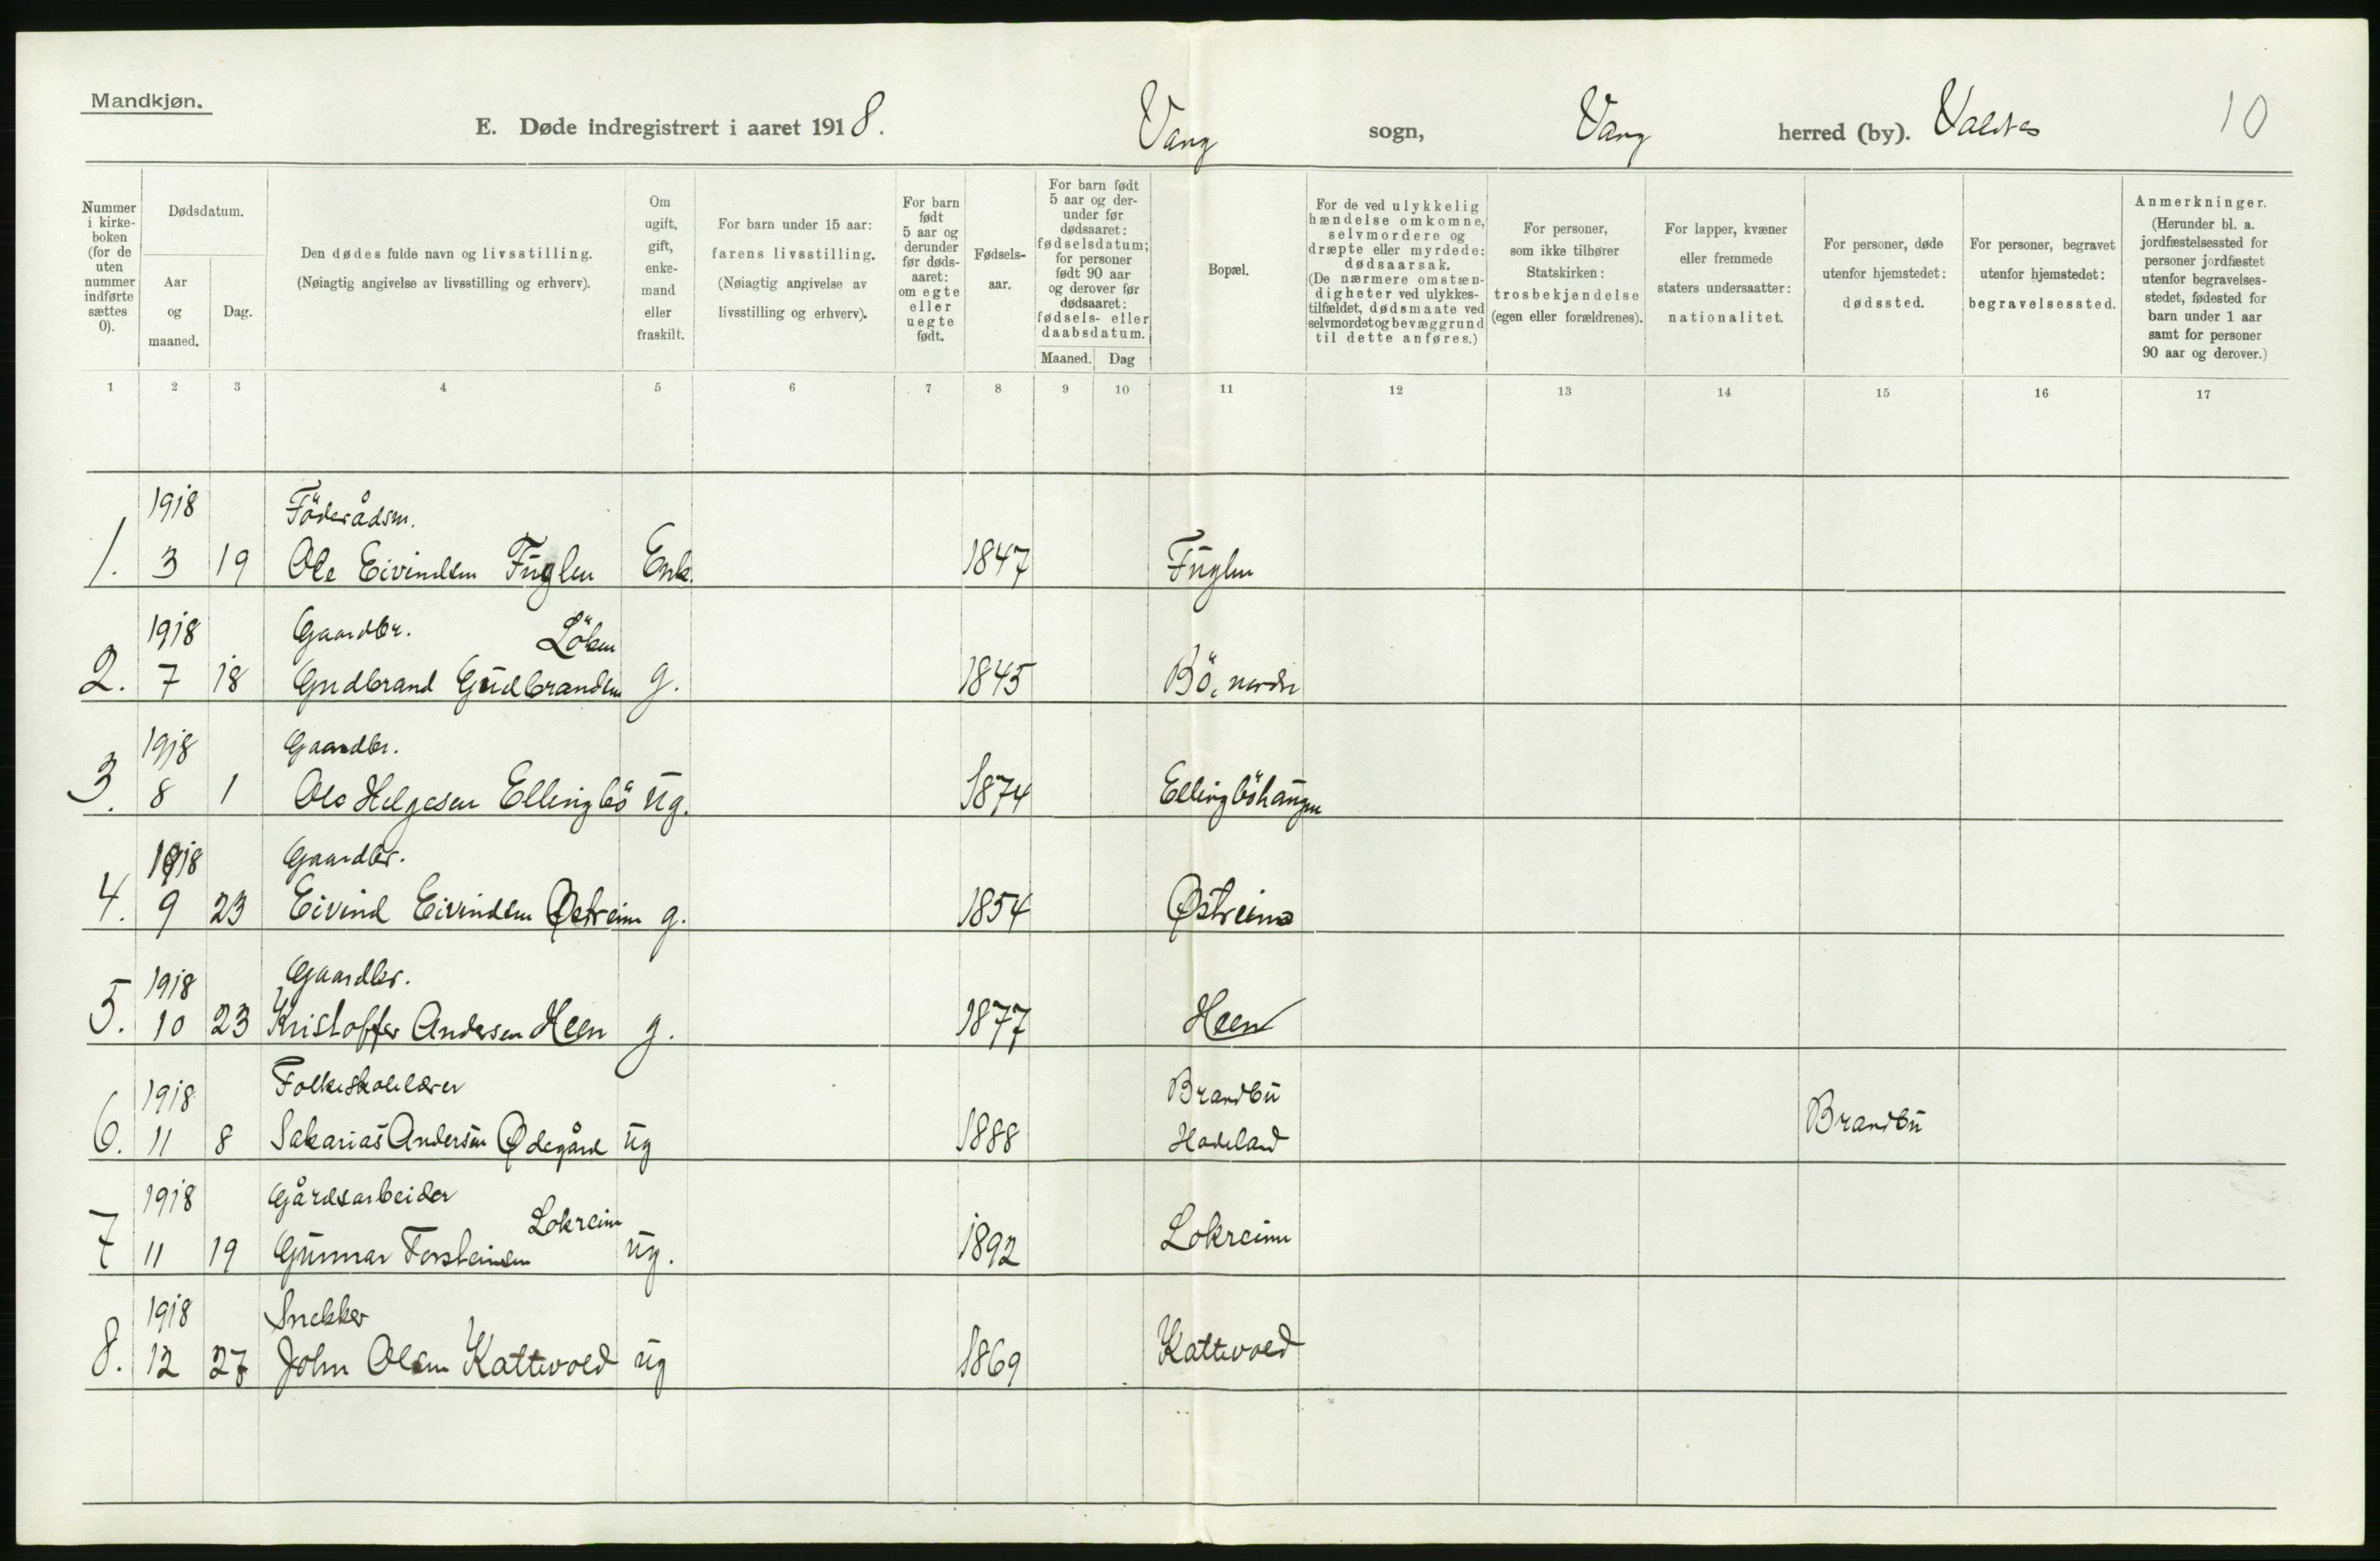 Mandkjøn.
E. Døde indregistrert i aaret 1918. Vang sogn, Vang herred (by). Valdres 10
Nummer i kirke-boken (for de uten nummer indførte sættes 0).
Dødsdatum.
Aar og maaned.
Dag.
Den dødes fulde navn og livsstilling.
(Nøiagtig angivelse av livsstilling og erhverv).
Om ugift, gift, enke-mand eller fraskilt.
For barn under 15 aar: farens livsstilling.
(Nøiagtig angivelse av livsstilling og erhverv).
For barn født 5 aar og derunder før døds-aaret: om egte eller uegte født.
Fødsels-aar.
For barn født 5 aar og der-under før dødsaaret: fødselsdatum; for personer født 90 aar og derover før dødsaaret: fødsels- eller daabsdatum.
Maaned. Dag
Bopæl.
For de ved ulykkelig hændelse omkomne, selvmordere og dræpte eller myrdede: dødsaarsak.
(De nærmere omstæn-digheter ved ulykkes-tilfældet, dødsmaate ved selvmordet og bevæggrund til dette anføres.)
For personer, som ikke tilhører Statskirken: trosbekjendelse (egen eller forældrenes).
For lapper, kvæner eller fremmede staters undersaatter: nationalitet.
For personer, døde utenfor hjemstedet: dødssted.
For personer, begravet utenfor hjemstedet: begravelsessted.
Anmerkninger.
(Herunder bl. a. jordfæstelsessted for personer jordfæstet utenfor begravelses-stedet, fødested for barn under 1 aar samt for personer 90 aar og derover.)
1 2 3 4 5 6 7 8 9 10 11 12 13 14 15 16 17
1918 Föderådsm.
1. 3 19 Ole Eivindsen Fuglen Enk. 1847 Fuglen
1918 Gaardbr. Löken
2. 7 18 Gudbrand Gudbrandsen g. 1845 Bö, nordre
1918 Gaardbr.
3. 8 1 Ole Helgesen Ellingbö ug. 1874 Ellingböhaugen
1918 Gaardbr.
4. 9 23 Eivind Eivindsen Østreim g. 1854 Østreim
1918 Gaardbr.
5. 10 23 Kristoffer Andersen Heen g. 1877 Heen
1918 Folkeskolelærer Brandbu
6. 11 8 Sakarias Andersen Ødegård ug 1888 Hadeland Brandbu
1918 Gårdsarbeider Lokreim
7 11 19 Gunnar Torsteinsen ug. 1892 Lokreim
1918 Snekker
8. 12 27 John Olsen Kattevold ug 1869 Kattevold